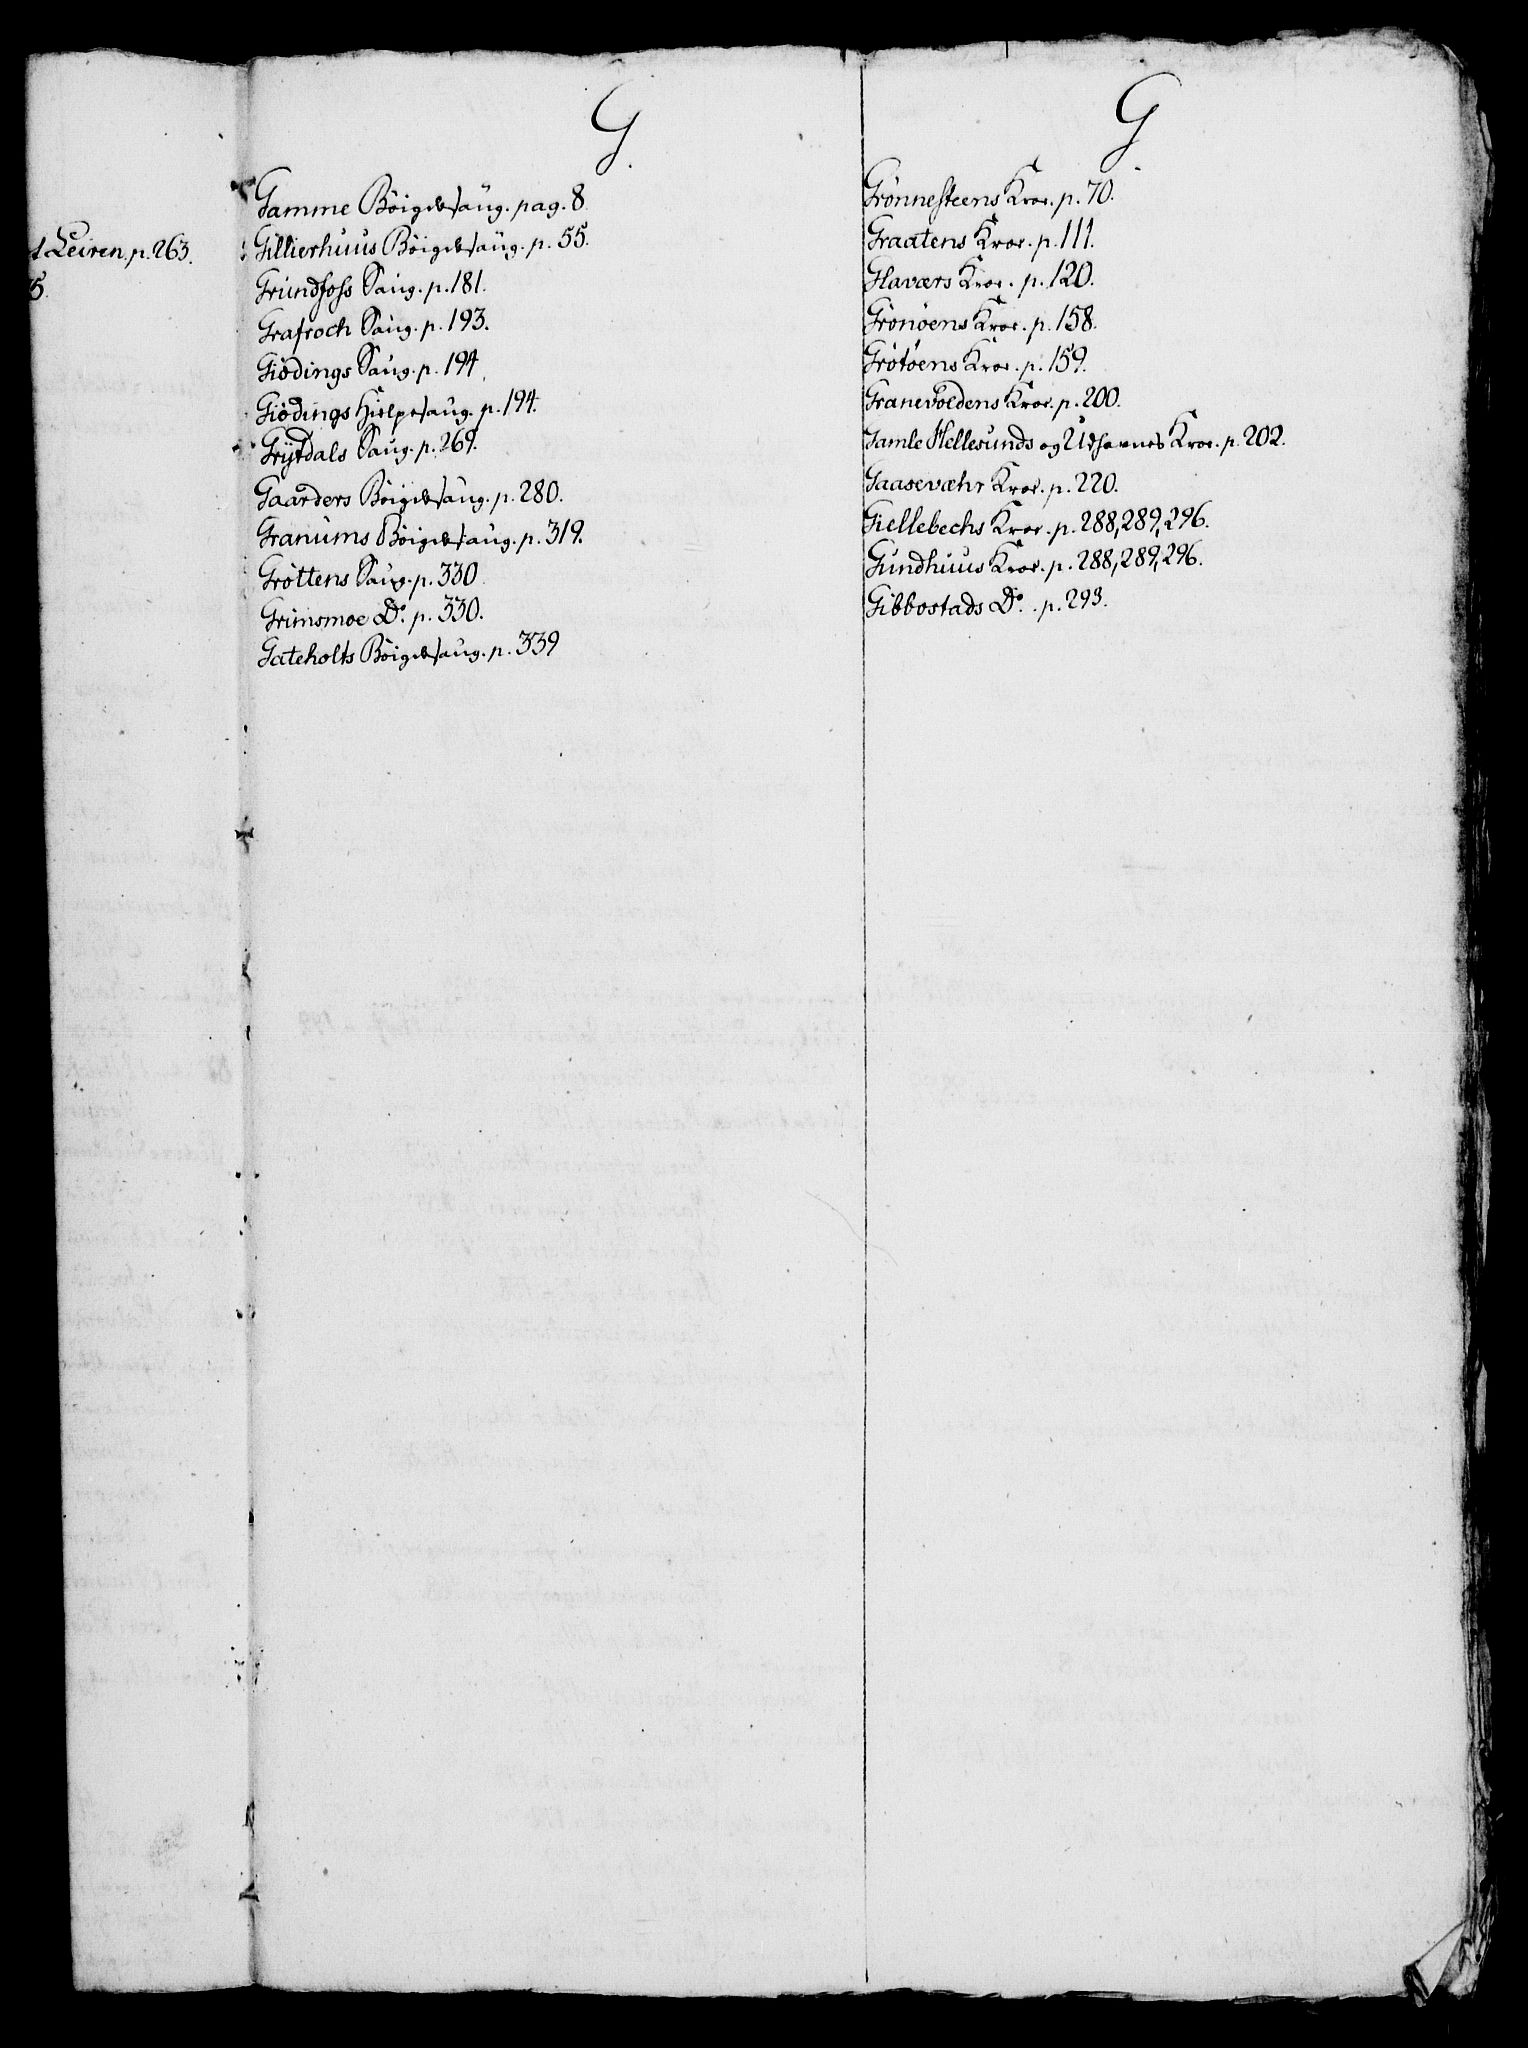 t Leiren, p. 263.
5.
G.
Gamme Böigdesaug. pag. 8.
Gillierhuus Böigdesaug. p. 55.
Grundfoss Saug. p. 181.
Grafroch Saug. p. 193.
Giödings Saug. p. 194.
Giödings Hielpesaug. p. 194.
Grytdals Saug. p. 269.
Gaarders Böigdesaug. p. 280.
Granums Böigdesaug. p. 319.
Gröttens Saug. p. 330.
Grimsmoe Do. p. 330.
Gateholts Böigdesaug. p. 339
G
Grönnesteens Kroe. p. 70.
Graatens Kroe. p. 111.
Glaværs Kroe. p. 120.
Grönöens Kroe. p. 158.
Grötöens Kroe. p. 159.
Granevoldens Kroe. p. 200.
Gamle Hellesunds og Udhavnes Kroe. p. 202.
Gaasevæhr Kroe. p. 220.
Giellebechs Kroe. p. 288, 289, 296.
Gundhuus Kroe. p. 288, 289, 296.
Gibbostads Do. p. 293.